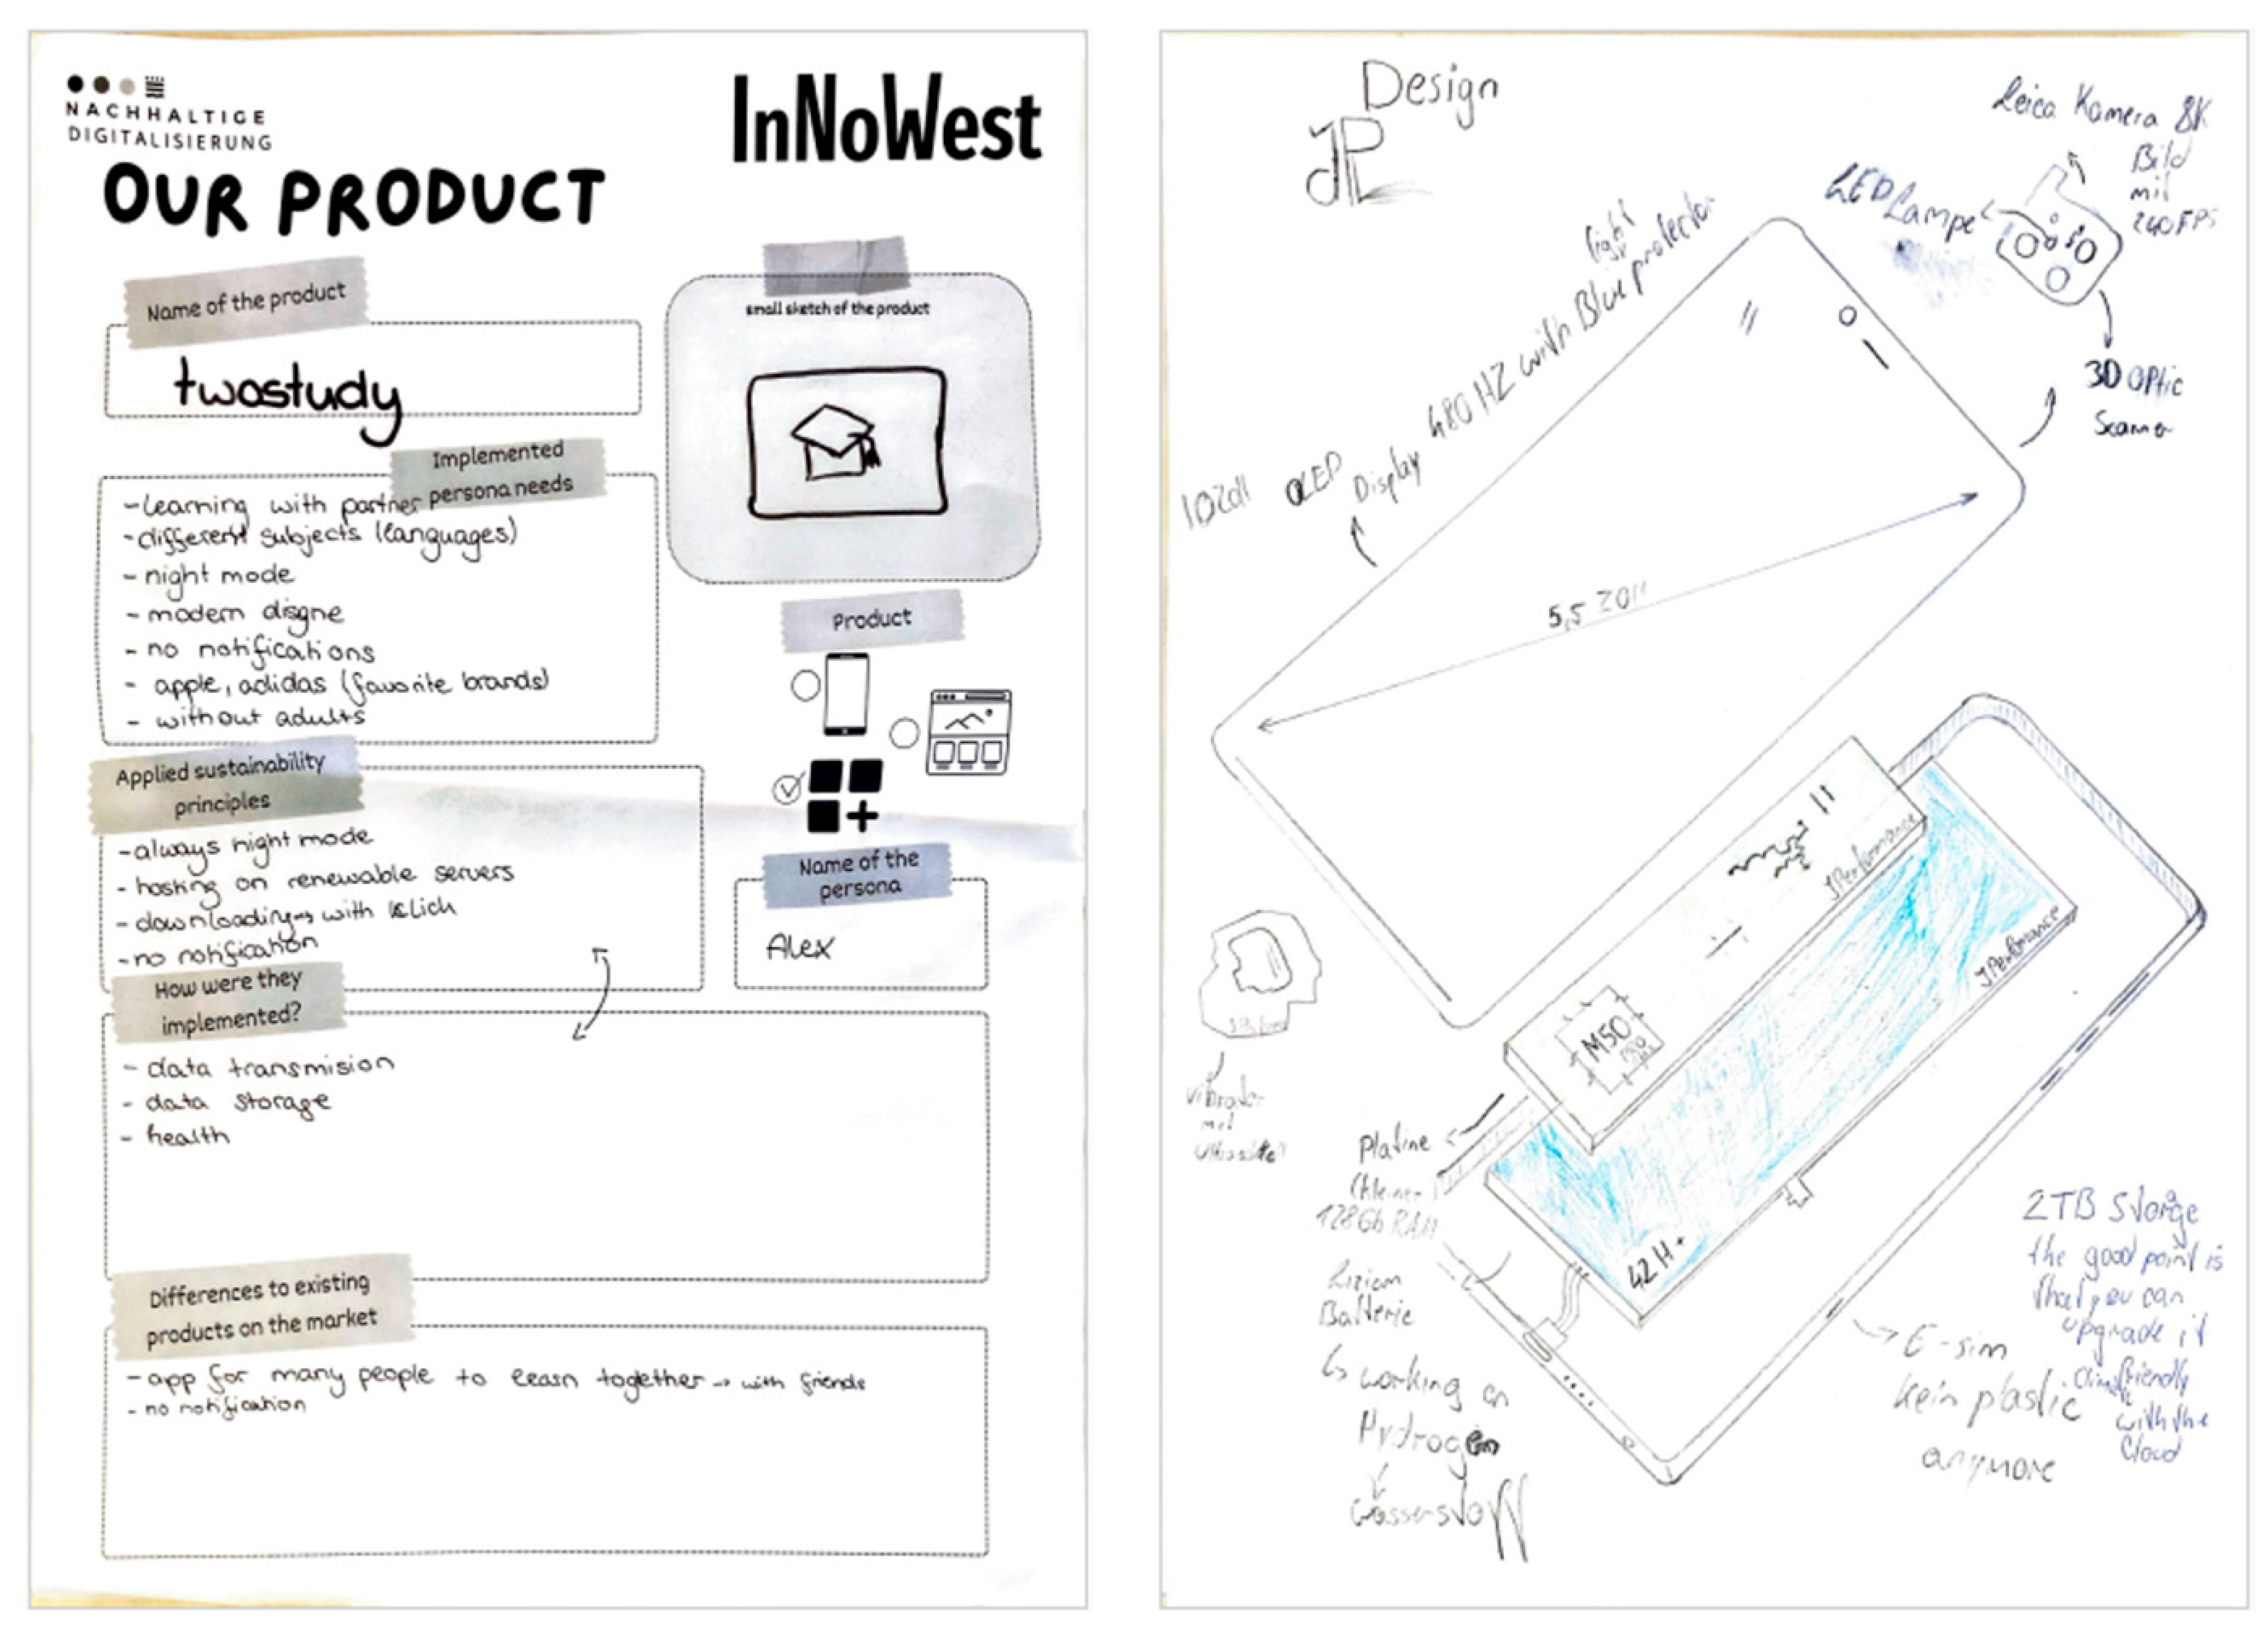 NACHHALTIGE
DIGITALISIERUNG
InNoWest
OUR PRODUCT
Name of the product
twostudy
small sketch of the product
Implemented
persona needs
-learning with partner
-different subjects (languages)
- night mode
- modern disgne
- no notifications
- apple, adidas (favorite brands)
- without adults
Product
Applied sustainability
principles
-always night mode
- hosting on renewable servers
-downloading→ with klick
-no notification
Name of the
persona
Alex
How were they
implemented?
- data transmision
- data storage
- health
Differences to existing
products on the market
- app for many people to learn together → with friends
- no notification
Design
JP
Leica Kamera 8K
Bild
mit
240 FPS
LED Lampe
3D OPtic
Scanner
light
10Zoll OLED Display 480 HZ with Blue protector
5,5 Zoll
JPerformance
JPerformance
M50
42 H+
Vibrator
mit
Platine
128Gb RAM
Batterie
↳ working on
Hydrogen
Wasserstoff
E-sim
kein plastic
anymore
2TB Storge
the good point is
that you can
upgrade it
friendly
with the
Cloud